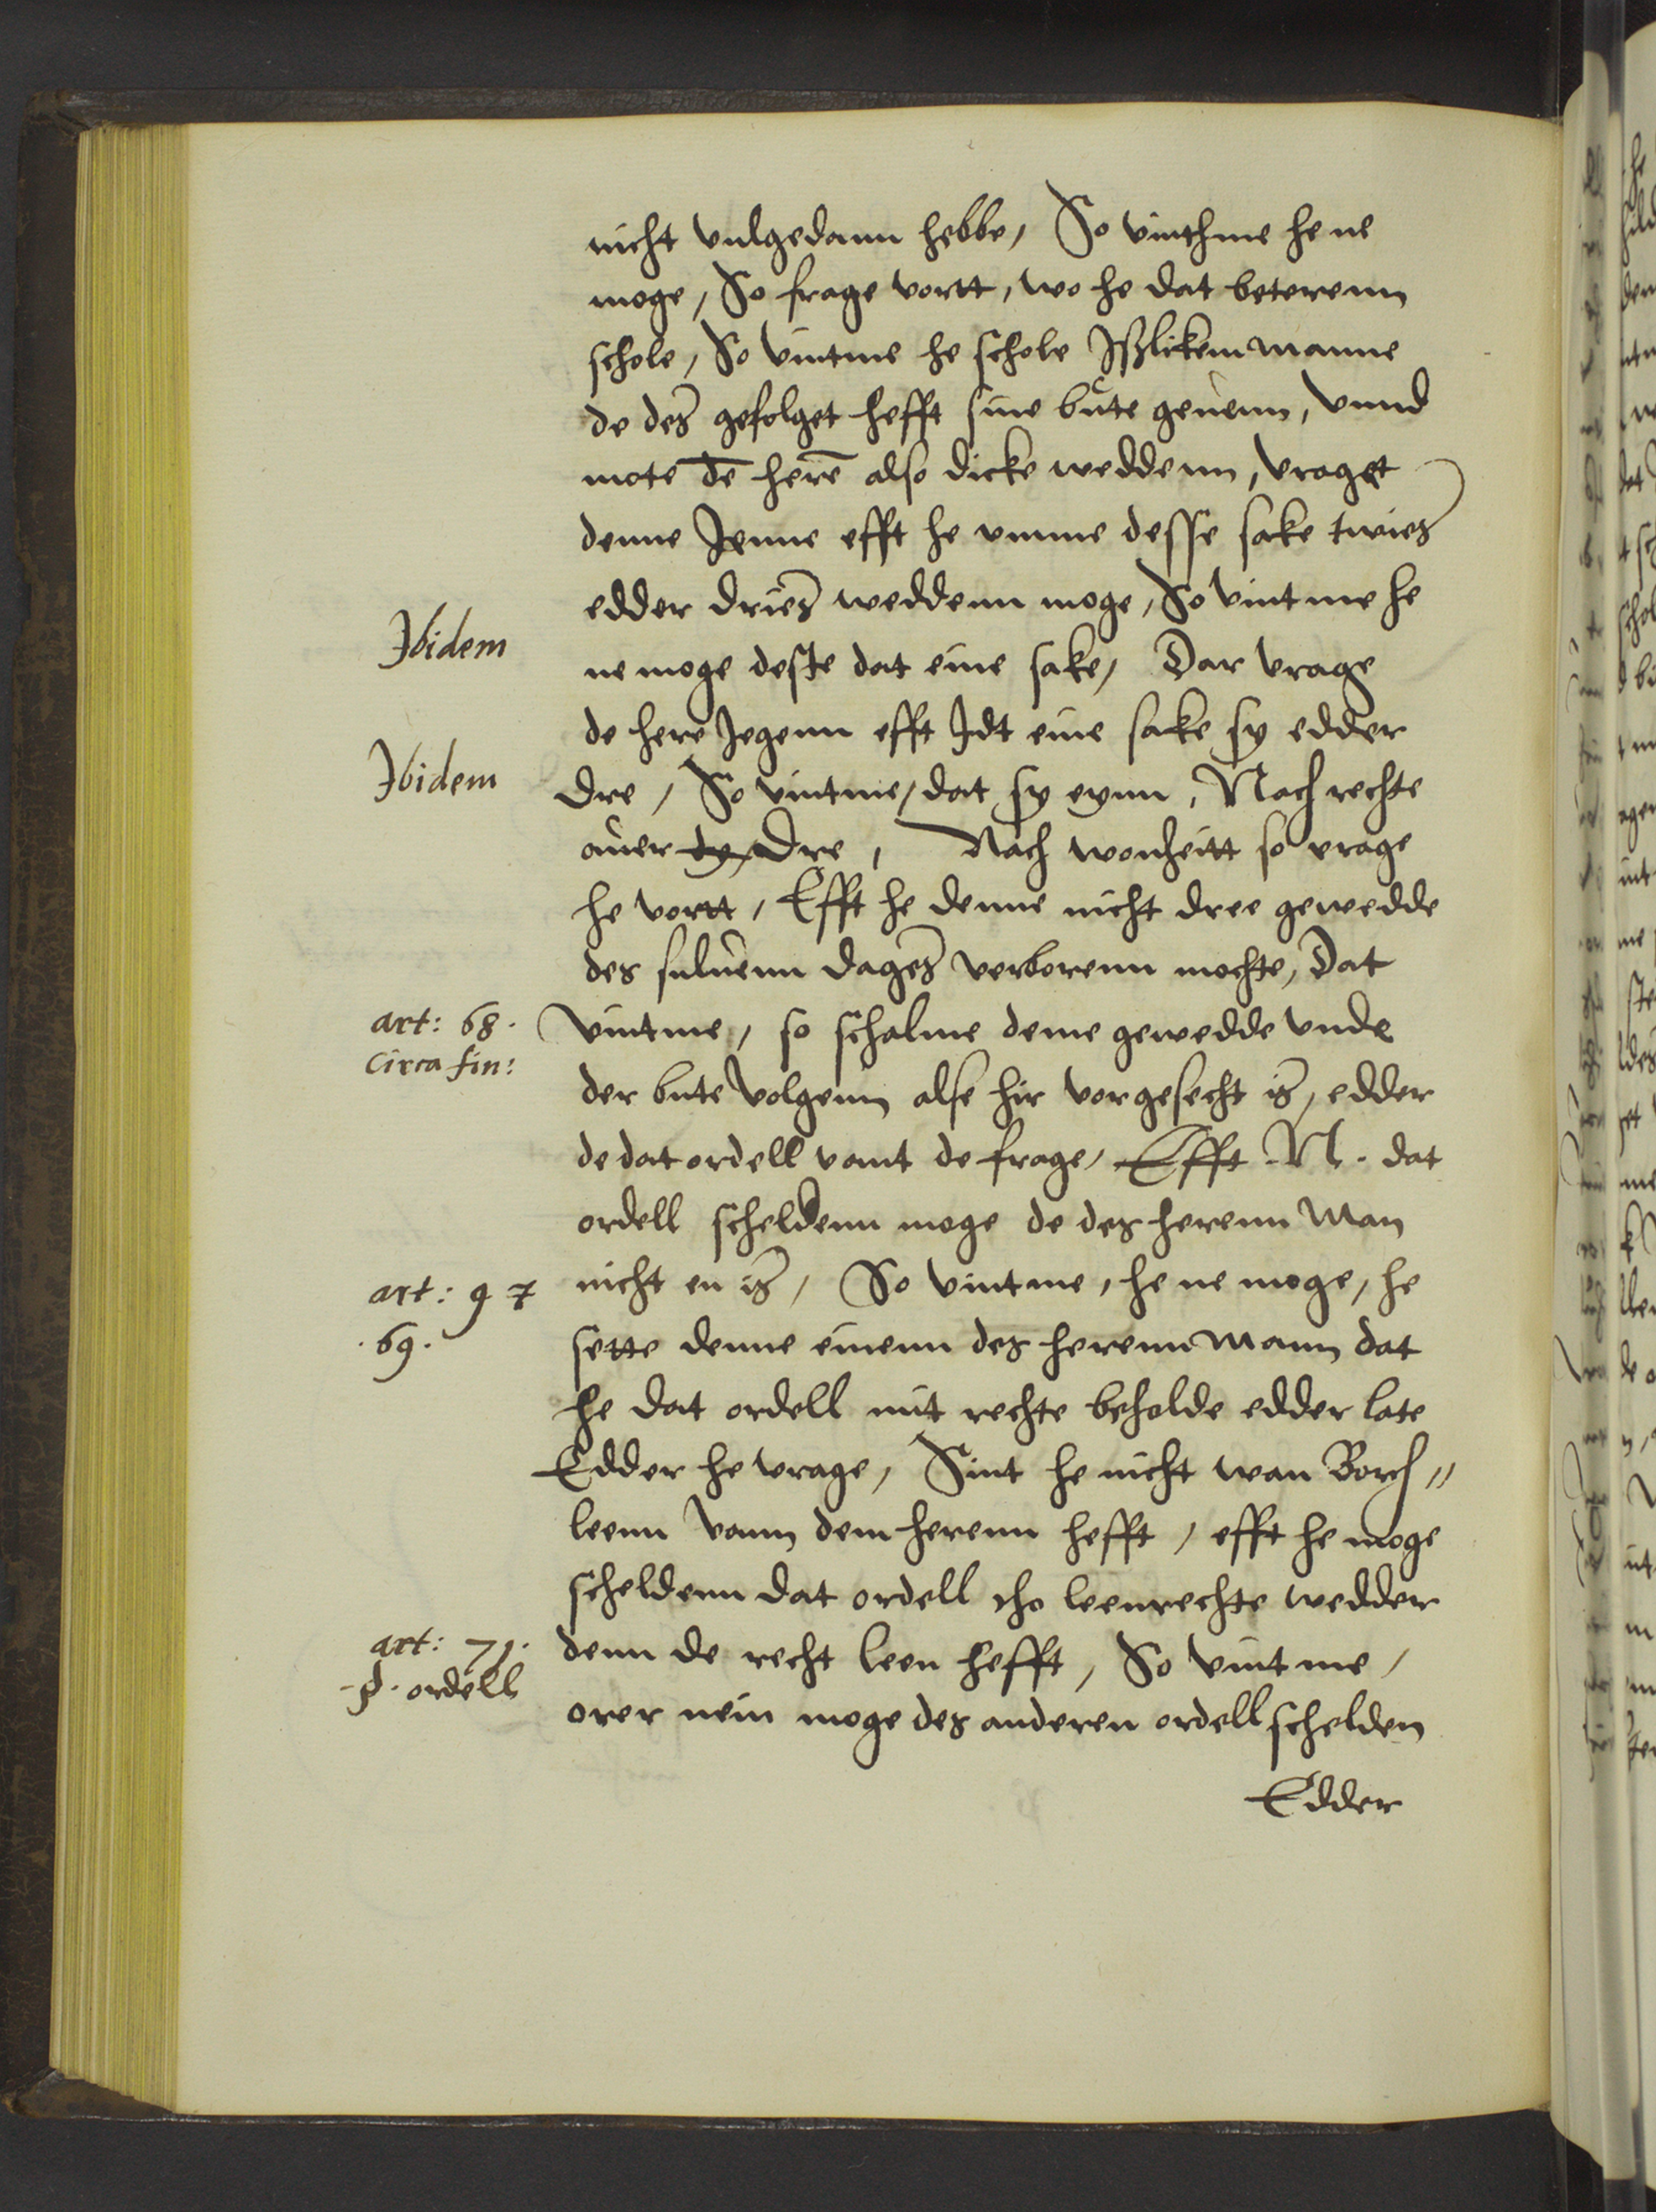 nicht vulgedann hebbe, So vinthme he ne
moge, So frage vortt, wo he dat beterenn
schole, So vintme he schole Ißlikem manne
de des gefolget hefft sine bute geuenn, vnnd
mote dē herē also dicke weddenn, vraget
denne Jenne efft he vmme desse sake twies
edder dries weddenn moge, So vintme he
Ibidem
ne moge deste dat eine sake, Dar vrage
de here Jegenn efft Idt eine sake sy edder
Ibidem
Dre, So vintme, dat sy eynn, Nach rechte
auer dy Dre, Nach wonheitt so vrage
he vortt, Efft he denne nicht dree gewedde
des suluenn dages verborenn mochte, Dat
art: 68.
Circa fin:
vintme, so schalme deme gewedde vnde
der bute volgenn alse hir vorgesecht is, edder
de dat ordell vant de frage, Efft .N. dat
ordell scheldenn moge de des herenn Man
art: 9 7
.69.
nicht en is, So vintme, he ne moge, he
sette denne einenn des herenn Mann dat
he dat ordell mit rechte beholde edder late
Edder he vrage, Sint he nicht wan Borch"
leenn vann dem herenn hefft, efft he moge
scheldenn dat ordell tho leenrechte wedder
art: 71.
§. ordell
denn de recht leen hefft, So vintme,
orer nein moge des anderen ordell schelden
Edder